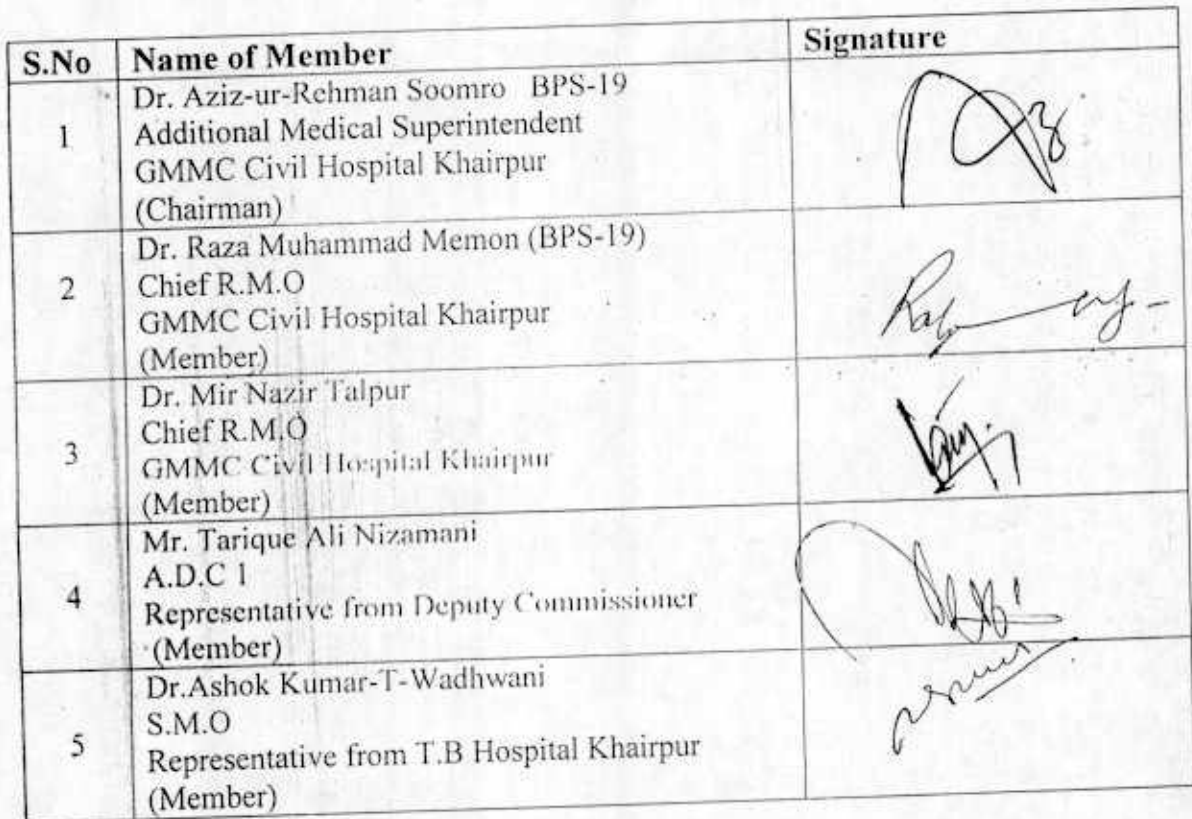 S.No Name of Member Signature
1
Dr. Aziz-ur-Rehman Soomro BPS-19
Additional Medical Superintendent
GMMC Civil Hospital Khairpur
(Chairman)
2
Dr. Raza Muhammad Memon (BPS-19)
Chief R.M.O
GMMC Civil Hospital Khairpur
(Member)
3
Dr. Mir Nazir Talpur
Chief R.M.O
GMMC Civil Hospital Khairpur
(Member)
4
Mr. Tarique Ali Nizamani
A.D.C 1
Representative from Deputy Commissioner
(Member)
5
Dr.Ashok Kumar-T-Wadhwani
S.M.O
Representative from T.B Hospital Khairpur
(Member)